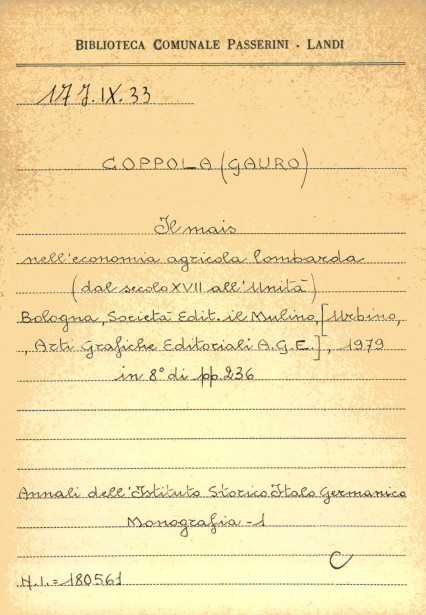 BIBLIOTECA COMUNALE PASSERINI - LANDI
17 J.IX.33
COPPOLA (GAURO)
Il mais
nell'economia agricola lombarda
(dal secolo XVII all'Unità)
Bologna, Società Edit. il Mulino, [Urbino,
, Arti Grafiche Editoriali A.G.E.], 1979
in 8° di pp. 236
Annali dell'Istituto Storico Italo Germanico
Monografia - 1
C
N.I. = 180561